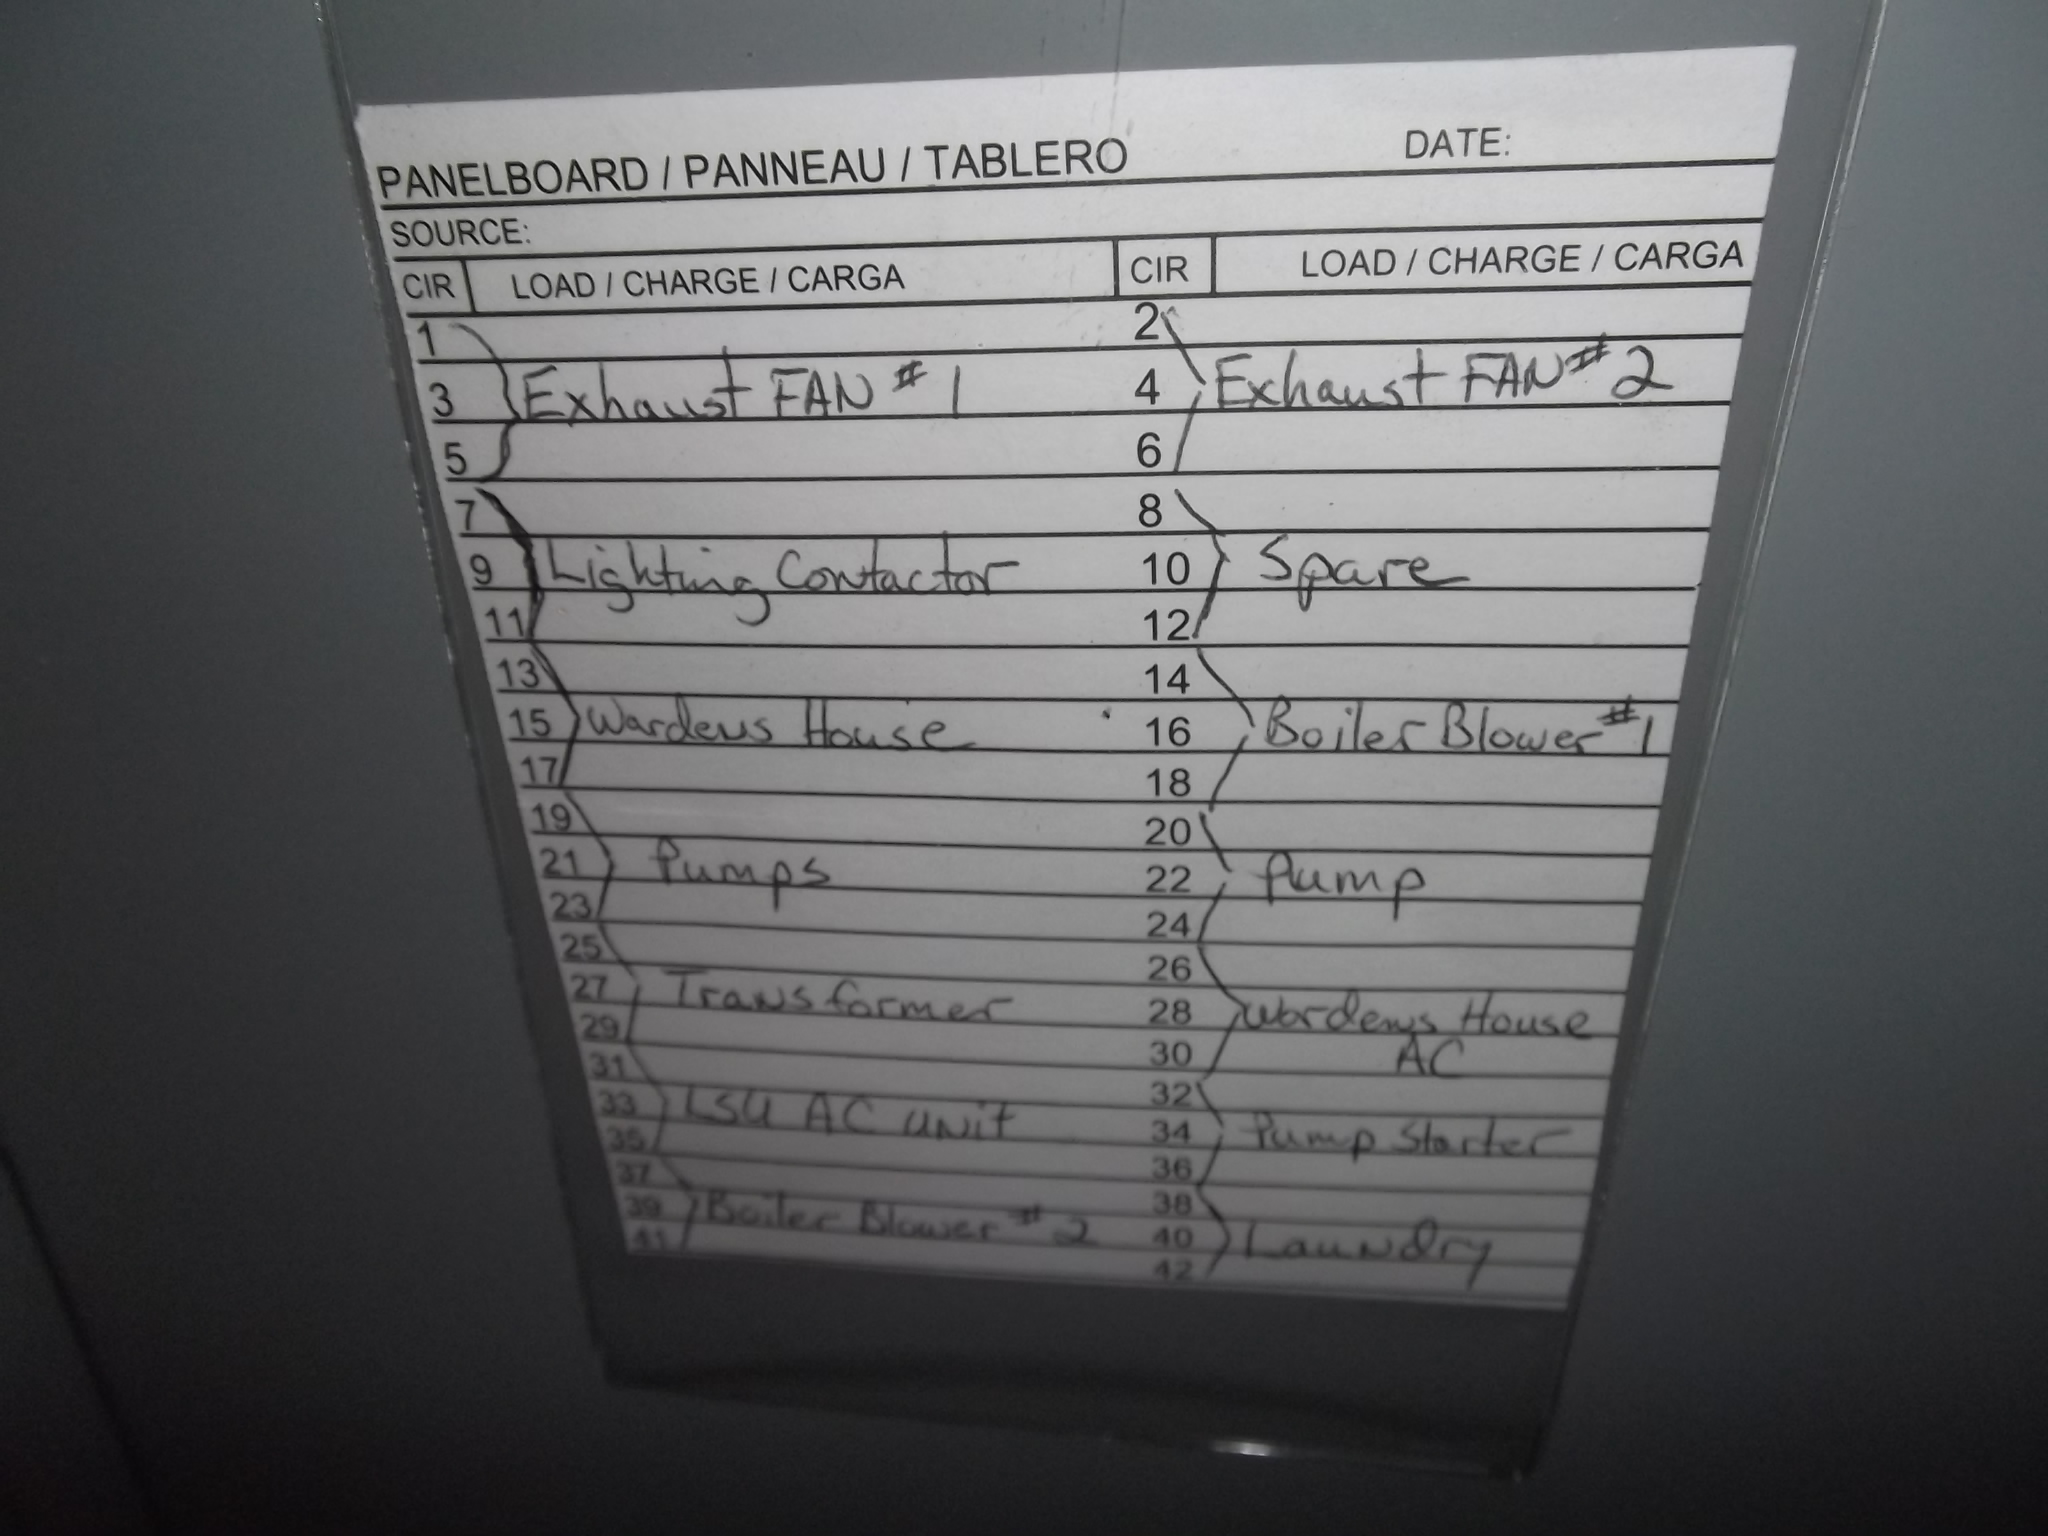 PANELBOARD / PANNEAU / TABLERO DATE:
SOURCE:
CIR LOAD / CHARGE / CARGA CIR LOAD / CHARGE / CARGA
1 2
3 Exhaust FAN # 1 4 Exhaust FAN # 2
5 6
7 8
9 Lighting Contactor 10 Spare
11 12
13 14
15 Wardens House 16 Boiler Blower #1
17 18
19 20
21 Pumps 22 Pump
23 24
25 26
27 Transformer 28 Wardens House
29 30 AC
31 32
33 LSU AC unit 34 Pump Starter
35 36
37 38
39 Boiler Blower # 2 40 Laundry
41 42